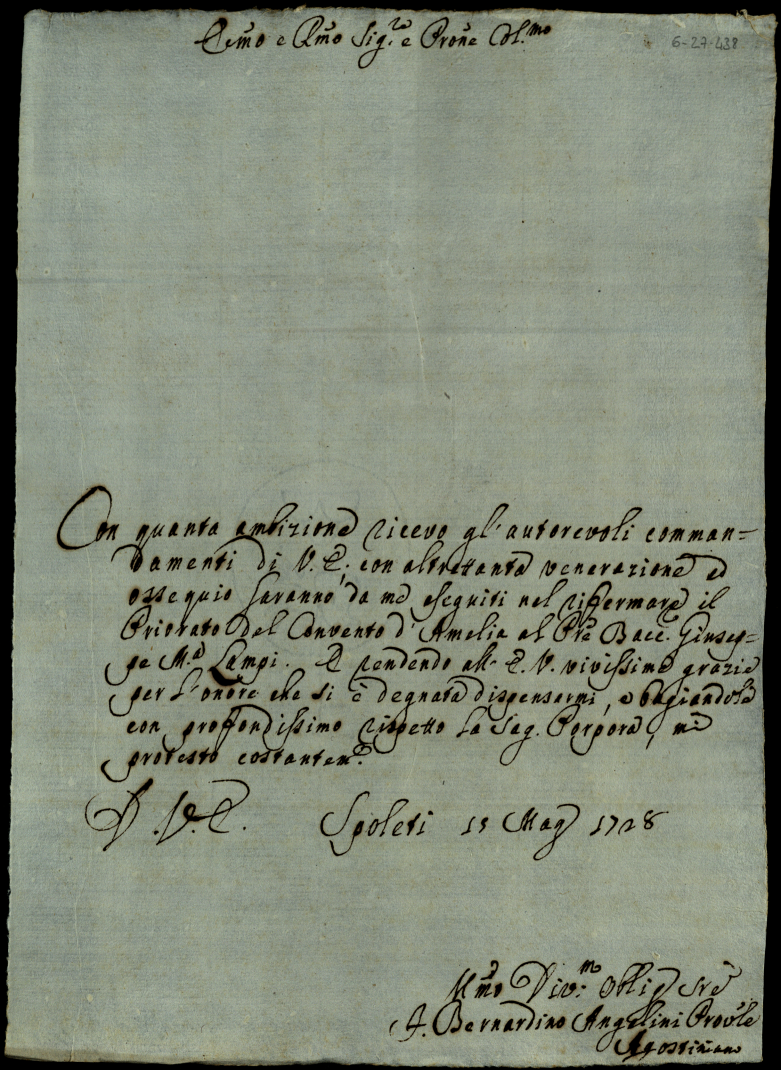 Em̃o e Rm̃o Sig.re e Prõne Col.mo
6-27-438
Con quanta ambizione ricevo gl'autorevoli comman=
damenti di V. E. con altrettanta venerazione ed
ossequio saranno da me eseguiti nel riffermare il
Priorato del Convento d'Amelia al Prẽ Bacc. Giusep=
pe M.a Lampi. E rendendo all' E. V. vivissime grazie
per l'onore che si è degnata dispensarmi, e bagiandole
con proffondissimo rispetto la Sag. Porpora, mi
protesto costantem.e
D. V. E. Spoleti 15 Mag 1728
Um̃o Div.m Oblig Sre
F. Bernardino Angelini Provle
Agostiniano